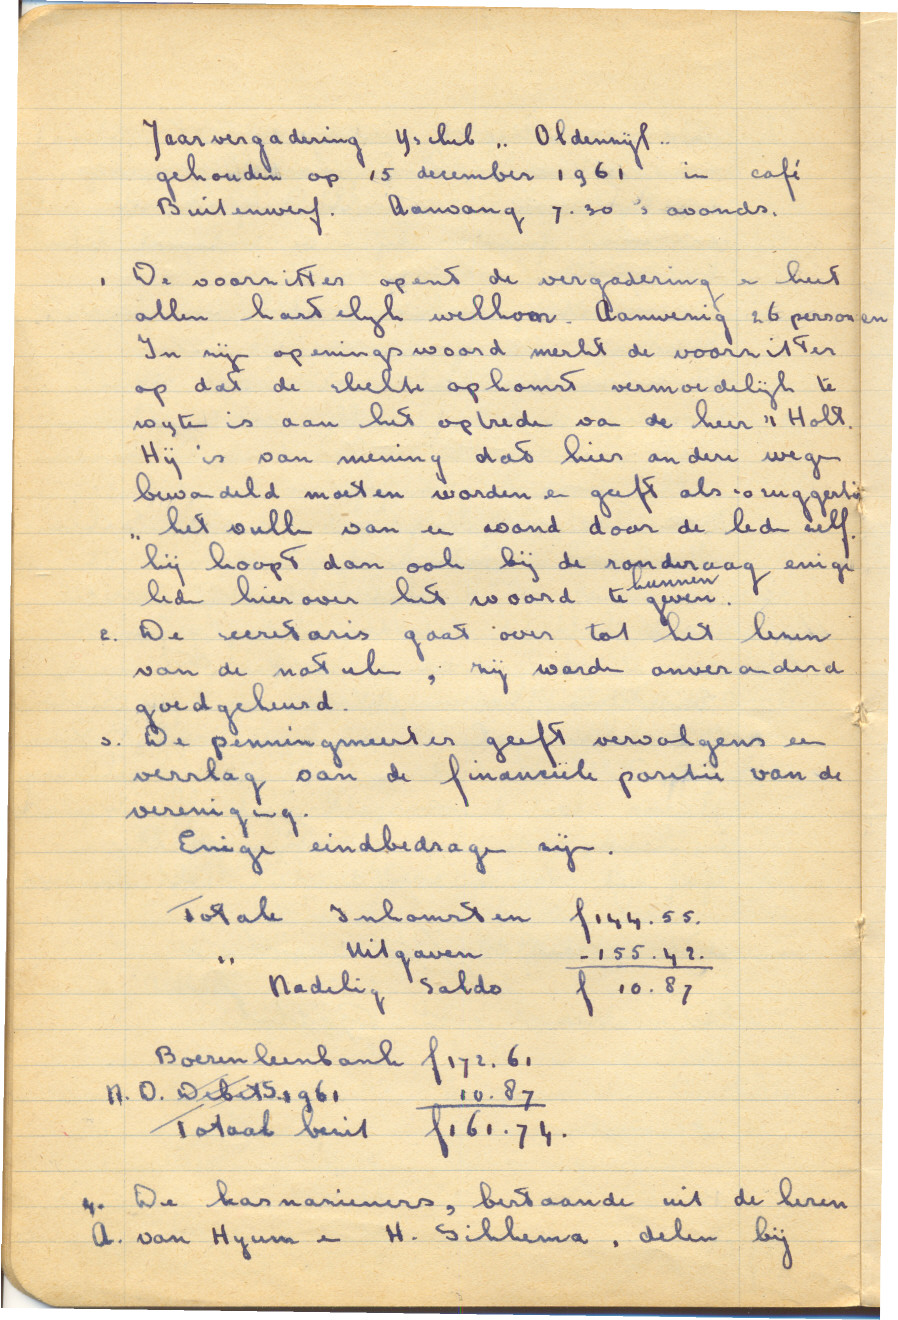 Jaarvergadering Ysclub „ Oldenzijl „
gehouden op 15 december 1961 in café
Buitenwerf. Aanvang 7.30 's avonds.
1 De voorzitter opent de vergadering en heet
allen hartelijk welkom. Aanwezig 26 personen
In zijn openingswoord merkt de voorzitter
op dat de slechte opkomst vermoedelijk te
wyten is aan het optreden van de heer 't Holt.
Hij is van mening dat hier andere wegen
bewandeld moeten worden en geeft als suggestie
„ het vullen van een avond door de leden zelf.
hij hoopt dan ook bij de rondvraag enige
leden hierover het woord te kunnen geven.
2. De secretaris gaat over tot het lezen
van de notulen, zij worden onveranderd
goedgekeurd.
3. De penningmeester geeft vervolgens een
verslag van de financiële positie van de
vereniging.
Enige eindbedragen zijn.
Totale Inkomsten f 144.55.
„ Uitgaven - 155.42.
Nadelig Saldo f 10.87
Boerenleenbank f 172.61
N. D. Debet S. 1961 10.87
Totaal bezit f 161.74.
4. De kasnazieners, bestaande uit de heren
A. van Hyum en H. Sikkema, delen bij